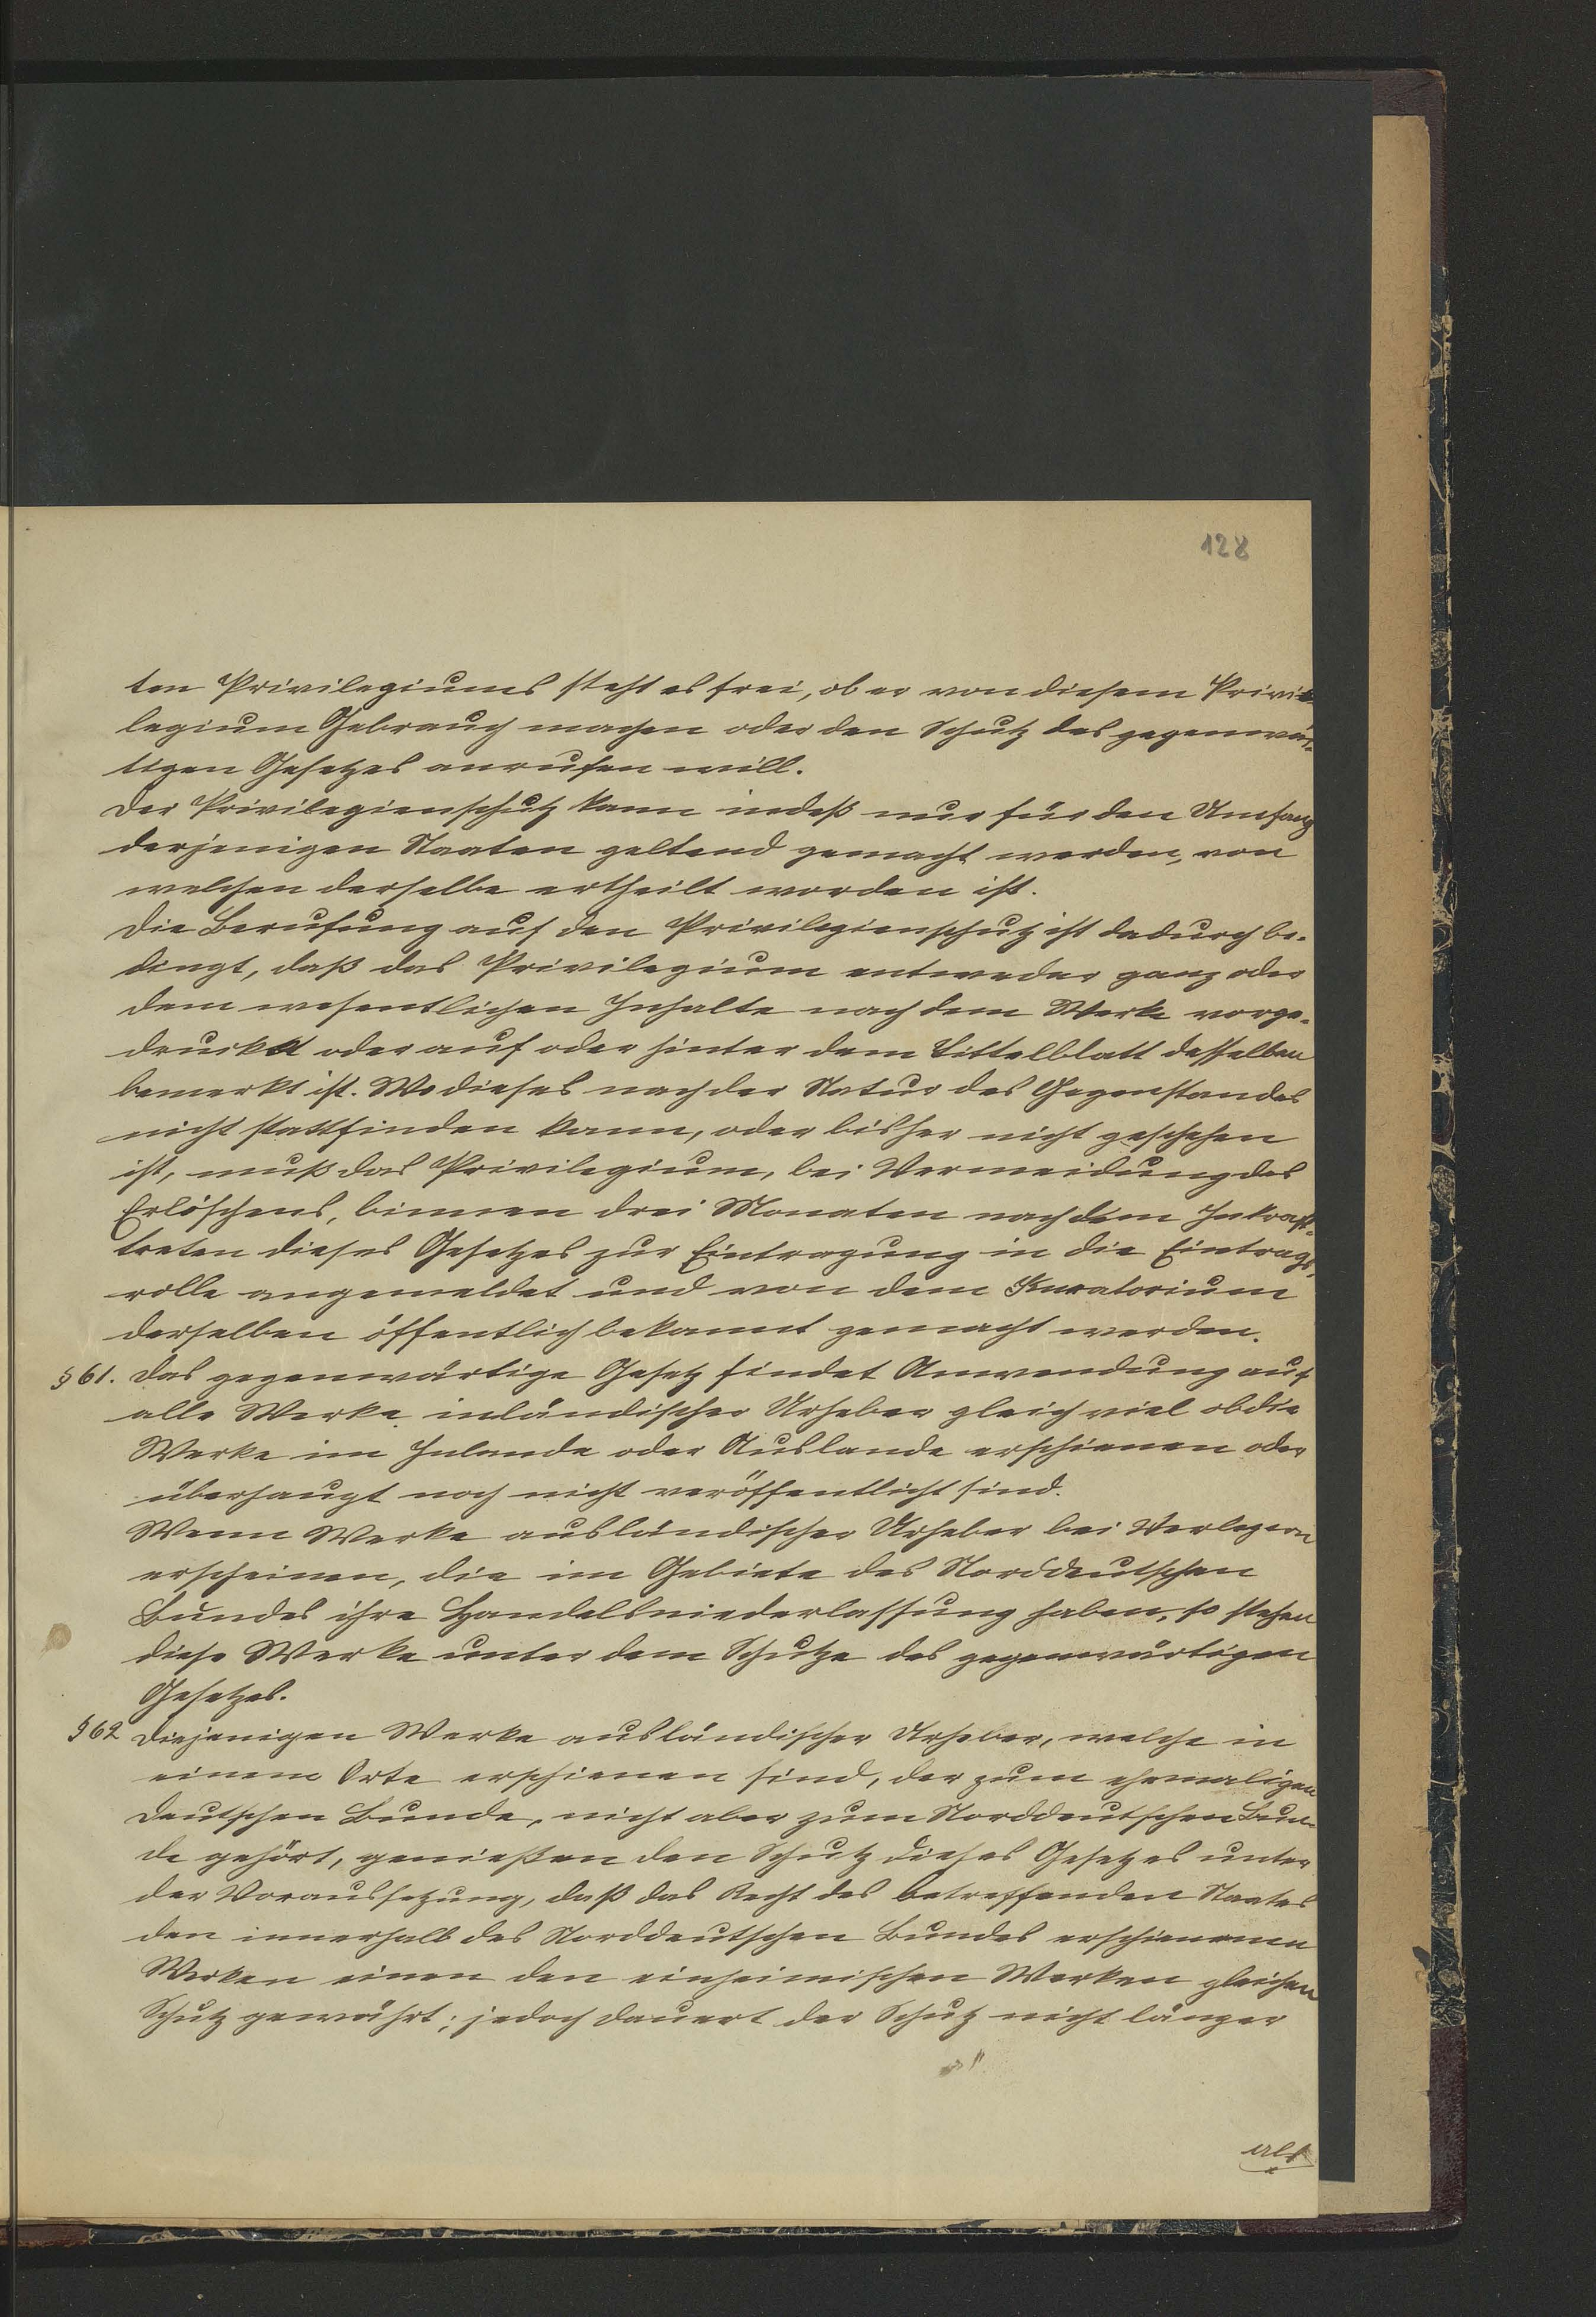 128
ten Privilegiums steht es frei, ob er von diesem Privi-
legium Gebrauch machen oder den Schutz des gegenwär-
tigen Gesetzes anrufen will.
Der Privilegienschutz kann indeß nur für den Umfang
derjenigen Staaten geltend gemacht werden, von
welchen derselbe ertheilt worden ist.
Die Berufung auf den Privilegienschutz ist dadurch be-
dingt, daß das Privilegium entweder ganz oder
dem wesentlichen Inhalte nach dem Werke vorge-
druckt oder auf oder hinter dem Tittelblatt desselben
bemerkt ist. Wo dieses nach der Natur des Gegenstandes
nicht stattfinden kann, oder bisher nicht geschehen
ist, muß das Privilegium, bei Vermeidung des
Erlöschens, binnen drei Monaten nach dem Inkraft-
treten dieses Gesetzes zur Eintragung in die Eintrags-
rolle angemeldet und von dem Kuratorium
derselben öffentlich bekannt gemacht werden.
§ 61. Das gegenwärtige Gesetz findet Anwendung auf
alle Werke inländischer Urheber gleich viel ob die
Werke im Inlande oder Auslande erschienen oder
überhaupt noch nicht veröffentlicht sind.
Wenn Werke ausländischer Urheber bei Verlegern
erscheinen, die im Gebiete des Norddeutschen
Bundes ihre Handelsniederlassung haben, so stehen
diese Werke unter dem Schutze des gegenwärtigen
Gesetzes.
§ 62 Diejenigen Werke ausländischer Urheber, welche in
einem Orte erschienen sind, der zum ehemaligen
deutschen Bunde, nicht aber zum Norddeutschen Bun-
de gehört, genießen den Schutz dieses Gesetzes unter
der Voraussetzung, daß das Recht des betreffenden Staates
den innerhalb des Norddeutschen Bundes erschienenen
Werken einen den einheimischen Werken gleichen
Schutz gewährt; jedoch dauert der Schutz nicht länger
als